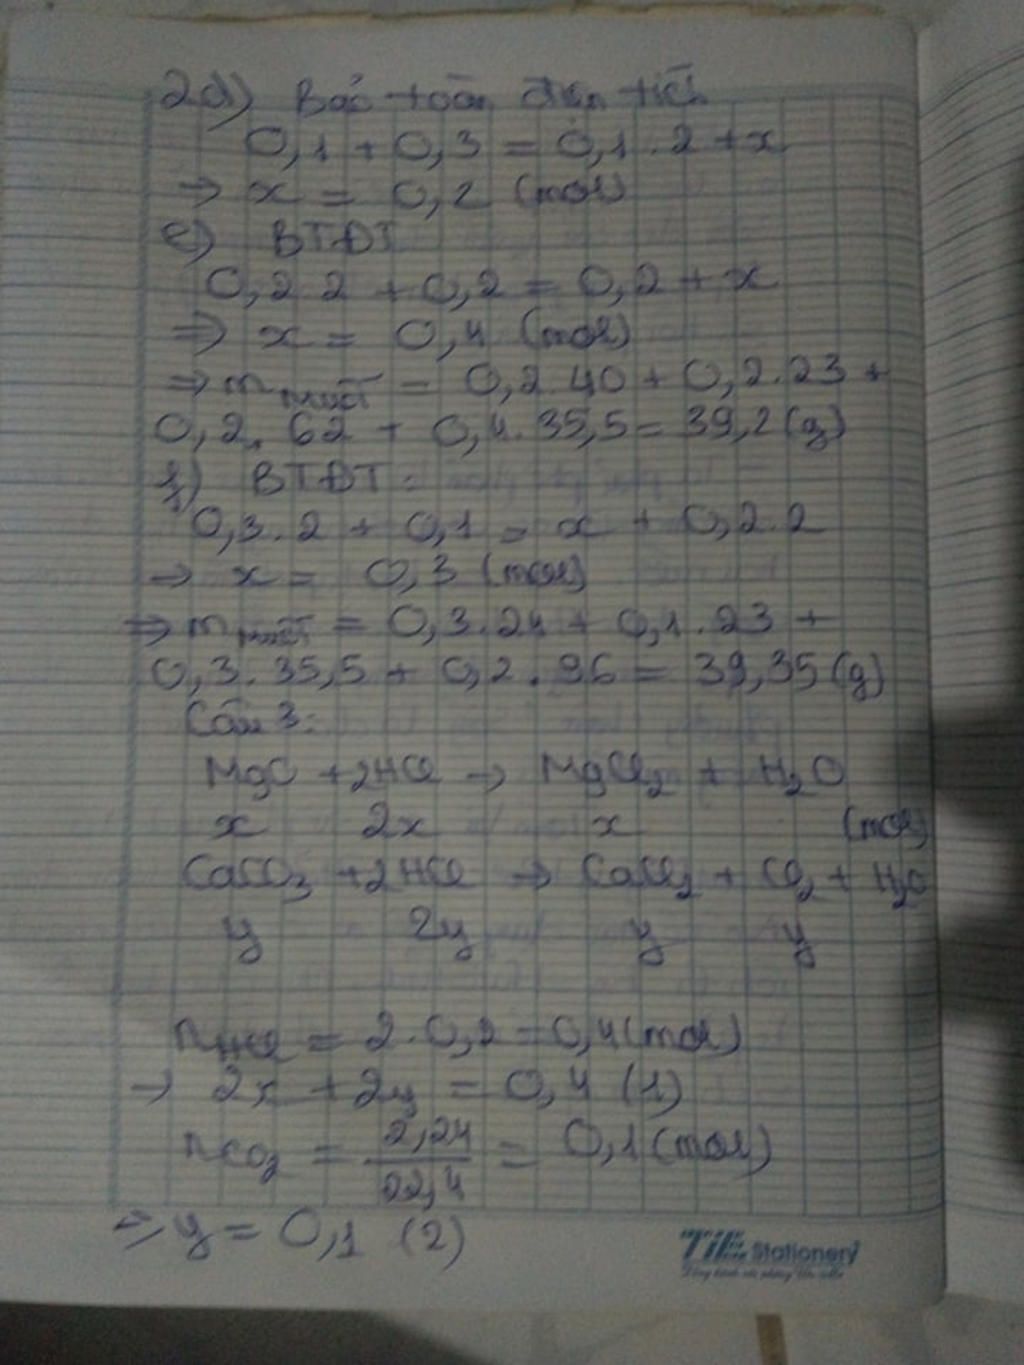 2d) Bảo toàn điện tích
0,1 + 0,3 = 0,1 . 2 + x
=> x = 0,2 (mol)
e) BTĐT
0,2.2 + 0,2 = 0,2 + x
=> x = 0,4 (mol)
=> m muối = 0,2.40 + 0,2.23 +
0,2.62 + 0,4.35,5 = 39,2 (g)
f) BTĐT:
0,3.2 + 0,1 = x + 0,2.2
=> x = 0,3 (mol)
=> m muối = 0,3.24 + 0,1.23 +
0,3.35,5 + 0,2.96 = 39,35 (g)
Câu 3:
MgO + 2HCl → MgCl₂ + H₂O
x 2x x (mol)
CaCO₃ + 2HCl → CaCl₂ + CO₂ + H₂O
y 2y y y
nHCl = 2.0,2 = 0,4 (mol)
→ 2x + 2y = 0,4 (1)
nCO₂ = 2,24/22,4 = 0,1 (mol)
=> y = 0,1 (2)
TiE Stationery